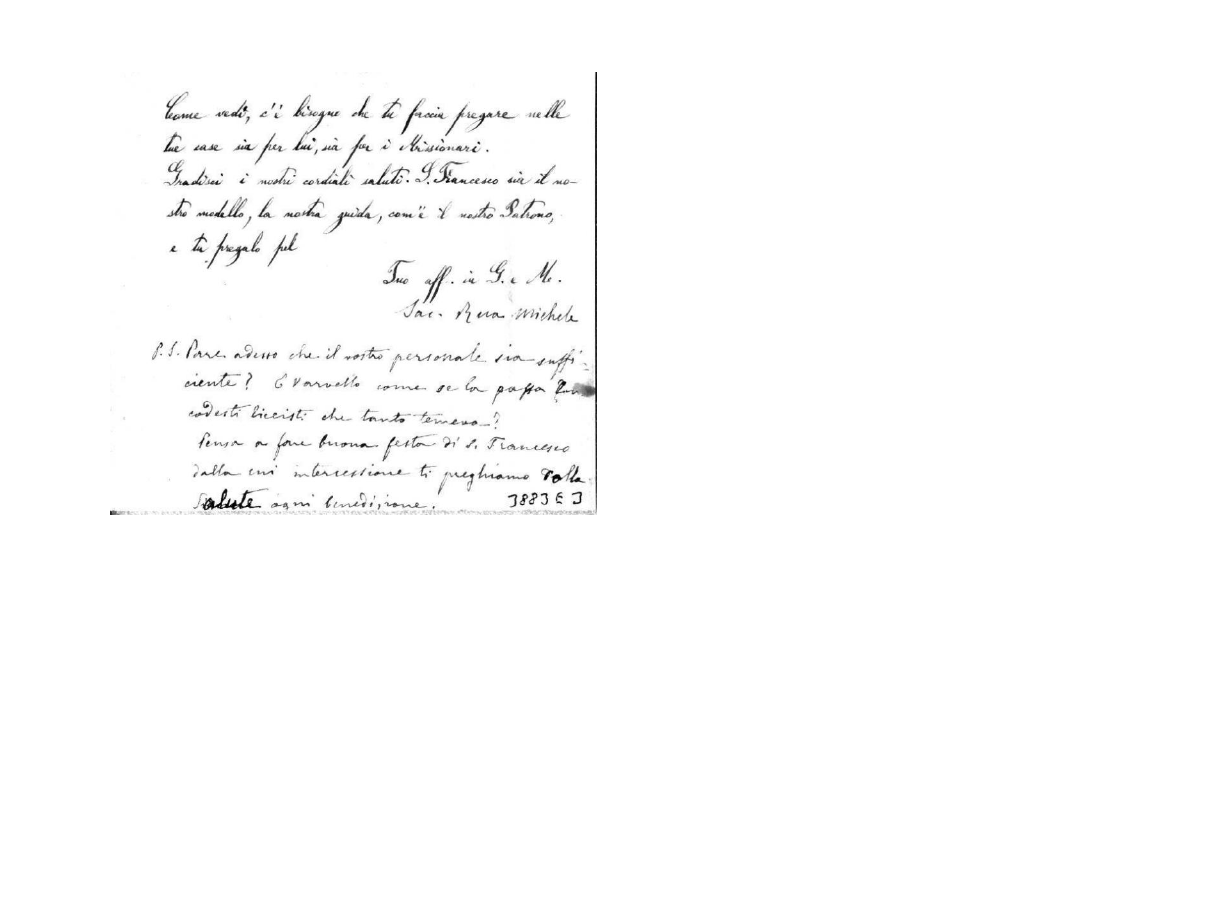 Come vedi, c'è bisogno che tu faccia pregare nelle
tue case sia per lui, sia per i Missionari.
Gradisci i nostri cordiali saluti. S. Francesco sia il no-
stro modello, la nostra guida, com'è il nostro Patrono,
e tu pregalo pel
Tuo aff. in G. e M.
Sac. Rua Michele
P.S. Pare adesso che il vostro personale sia suffi-
ciente? E Varvello come se la passa con
codesti liceisti che tanto temeva?
Pensa a fare buona festa di S. Francesco
dalla cui intercessione ti preghiamo colla
salute ogni benedizione.
3883 E 3